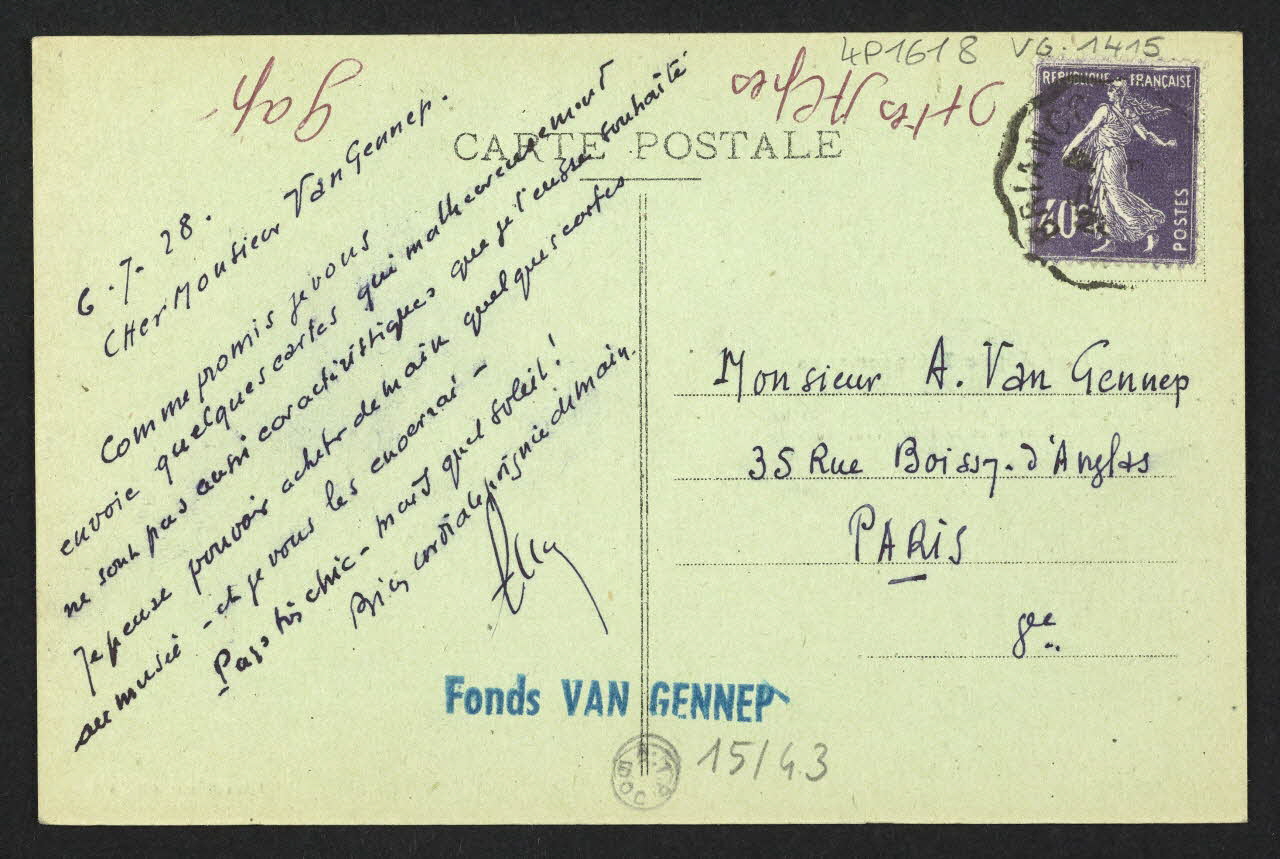 4P1618 VG. 1415
Htes Alpes
Gap
CARTE POSTALE
REPUBLIQUE FRANÇAISE
POSTES
BRIANÇO
6.7.28.
CHer Monsieur Van Gennep.
Comme promis je vous
envoie quelques cartes qui malheureusement
ne sont pas aussi caractéristiques que je l'eusse souhaité
Je pense pouvoir acheter demain quelques cartes
au musée - et je vous les enverrai -
Pays très chic - mais quel soleil!
Bien cordiale poignée de main.
Monsieur A. Van Gennep
35 Rue Boissy. d'Anglas
PARIS
8e
Fonds VAN GENNEP
A.T.P
DOC
15/43